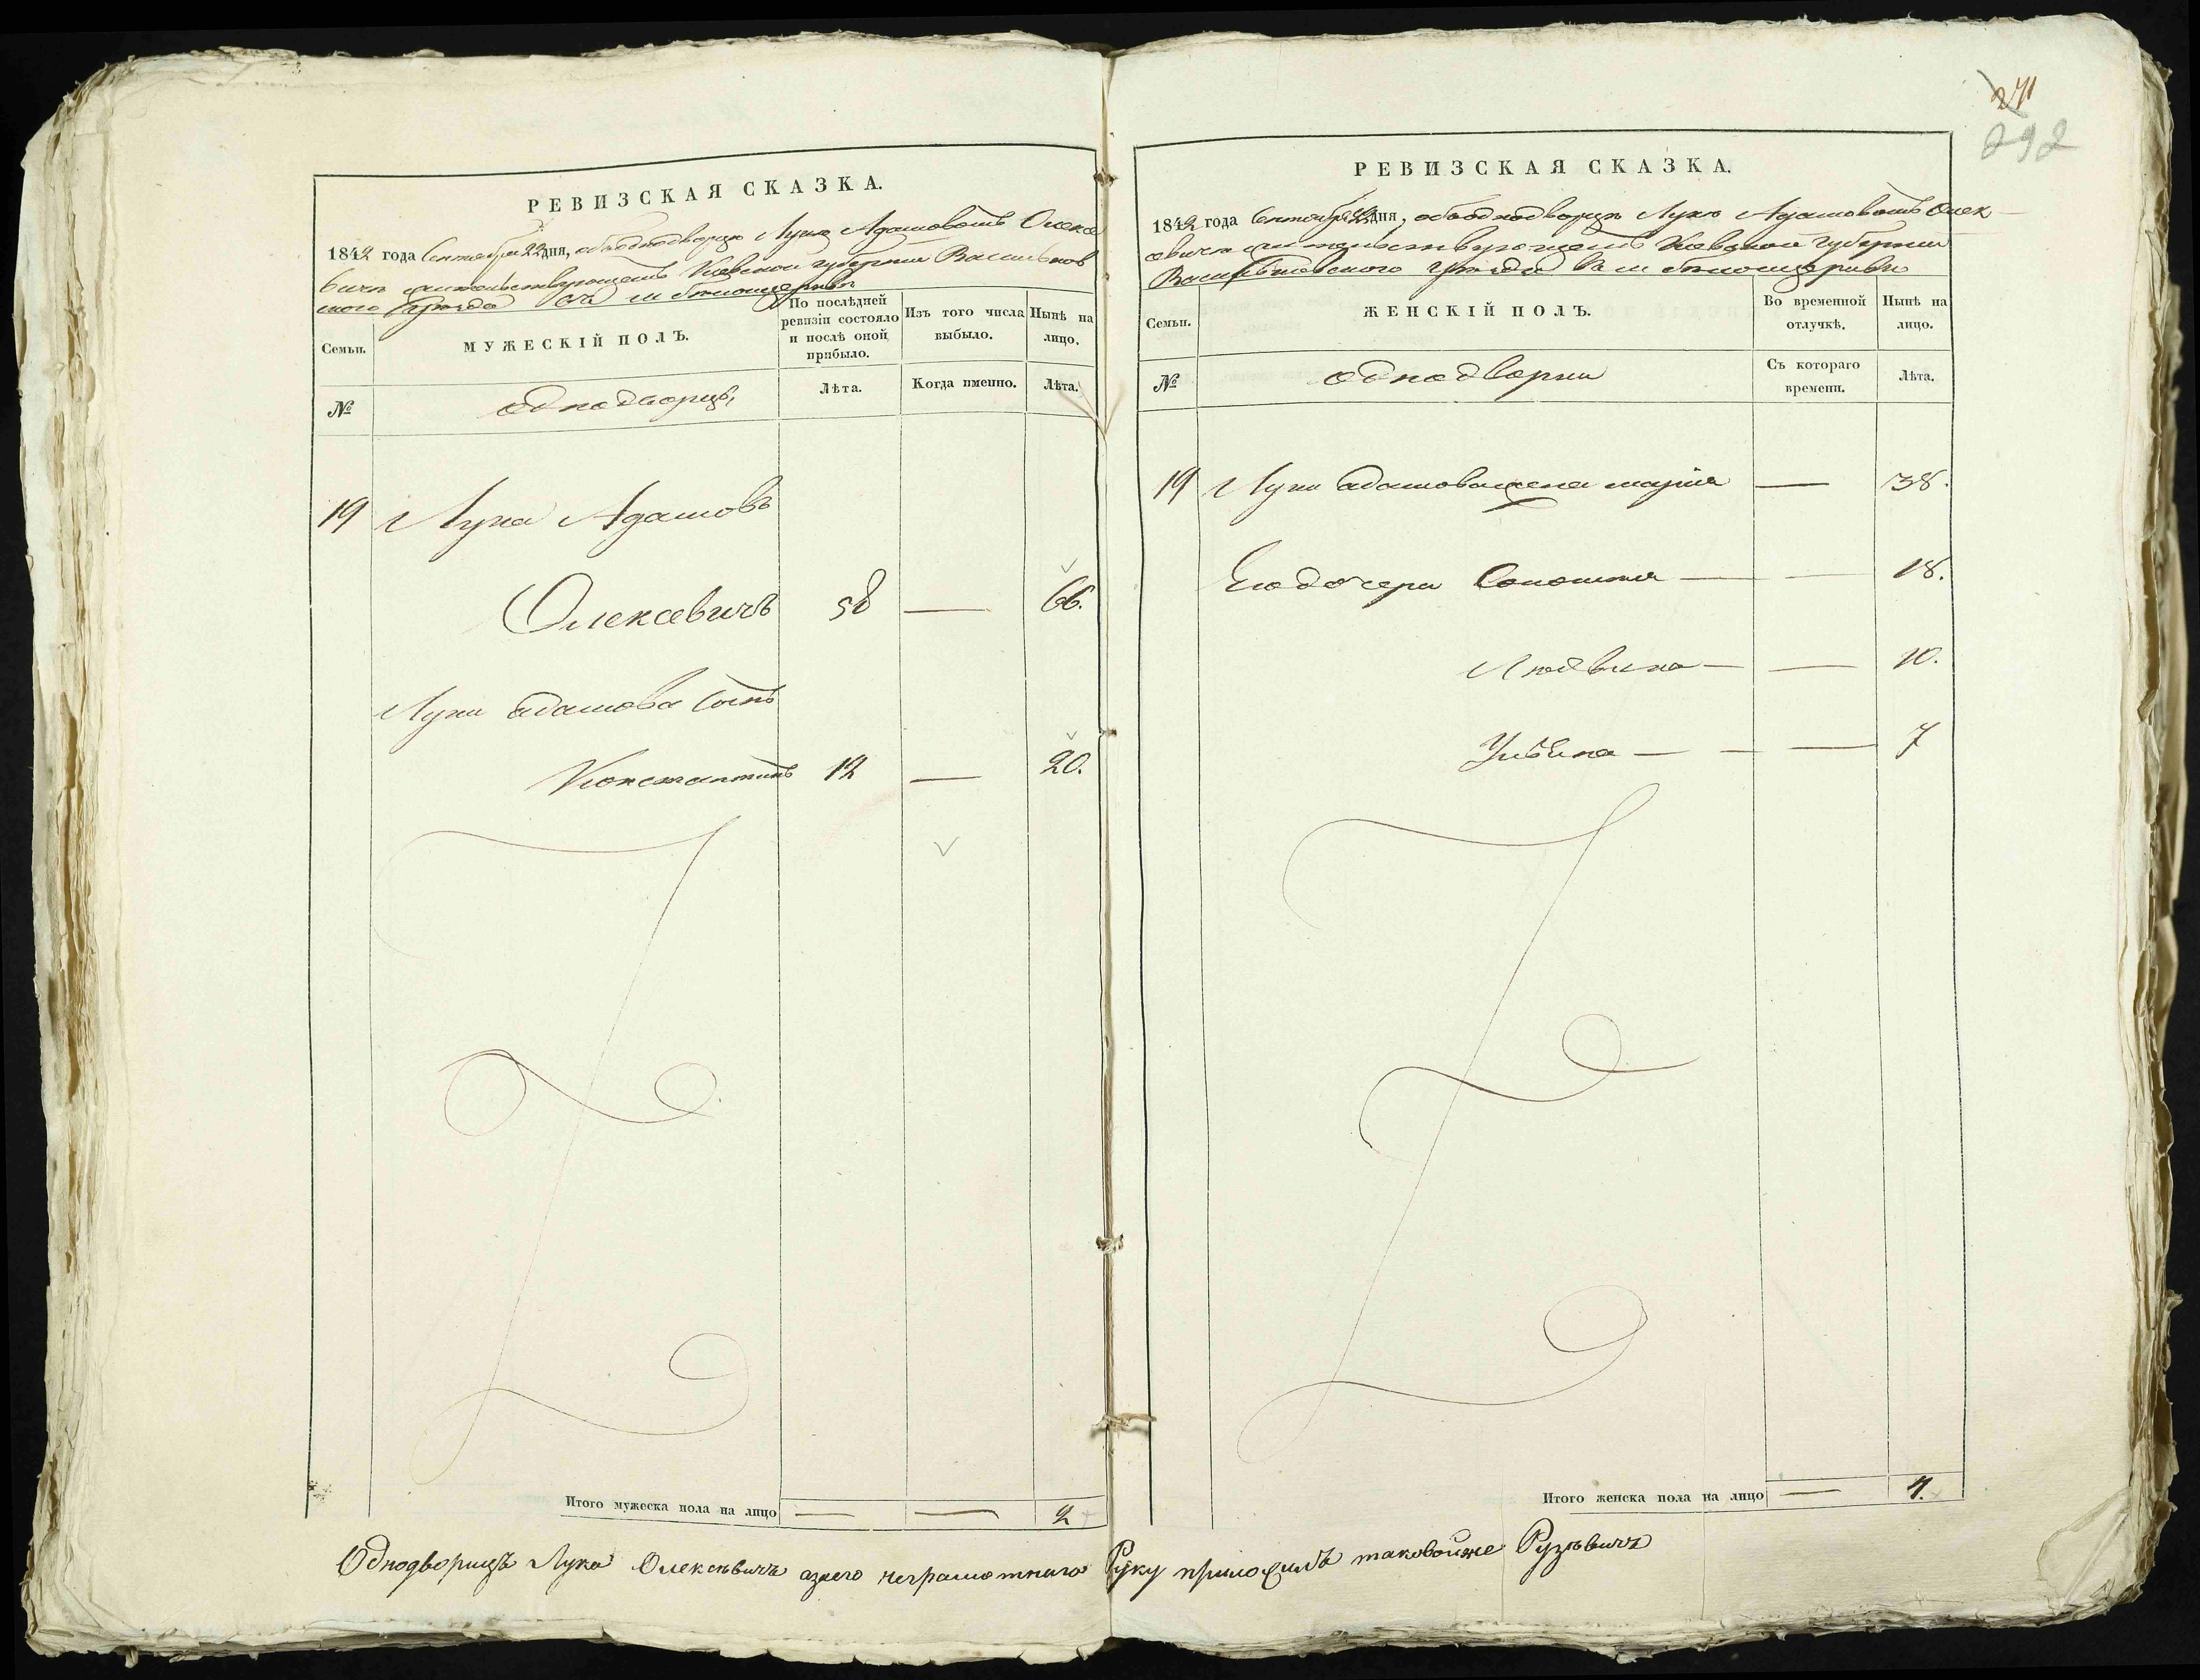 РЕВИЗСКАЯ СКАЗКА.
1842 года Сентября 22 дня, объ однодворцѣ Луке Адамовомъ Олексе
вичъ жительствующемъ Киевской губернии Васильков
ского уезда въ м белоцеркви
Семьи.
МУЖЕСКІЙ ПОЛЪ.
По послѣдней ревизіи состояло и послѣ оной прибыло.
Изъ того числа выбыло.
Нынѣ на лицо.
№
однодворцы
Лѣта.
Когда именно.
Лѣта.
19 Лука Адамовъ
Олексевичъ 58 — 66.
Луки адамова сынъ
Константинъ 12 — 20.
Итого мужеска пола на лицо — — 2
271
292
РЕВИЗСКАЯ СКАЗКА.
1842 года Сентября 22 дня, объ однодворцѣ Луке Адамовомъ Олек
севичъ жительствующемъ Киевской губернии
Васильковского уезда въ м белоцеркви
Семьи.
ЖЕНСКІЙ ПОЛЪ.
Во временной отлучкѣ.
Нынѣ на лицо.
№
однодворки
Съ котораго времени.
Лѣта.
19 Луки адамова жена мария — 38.
Его дочери Соломия — — 18.
Людвина — — 10.
Ульяна — — — 7
Итого женска пола на лицо — 4.
Однодворецъ Лука Олексѣвичъ а за его неграмотнаго Руку приложилъ таковойже Рузѣвичъ